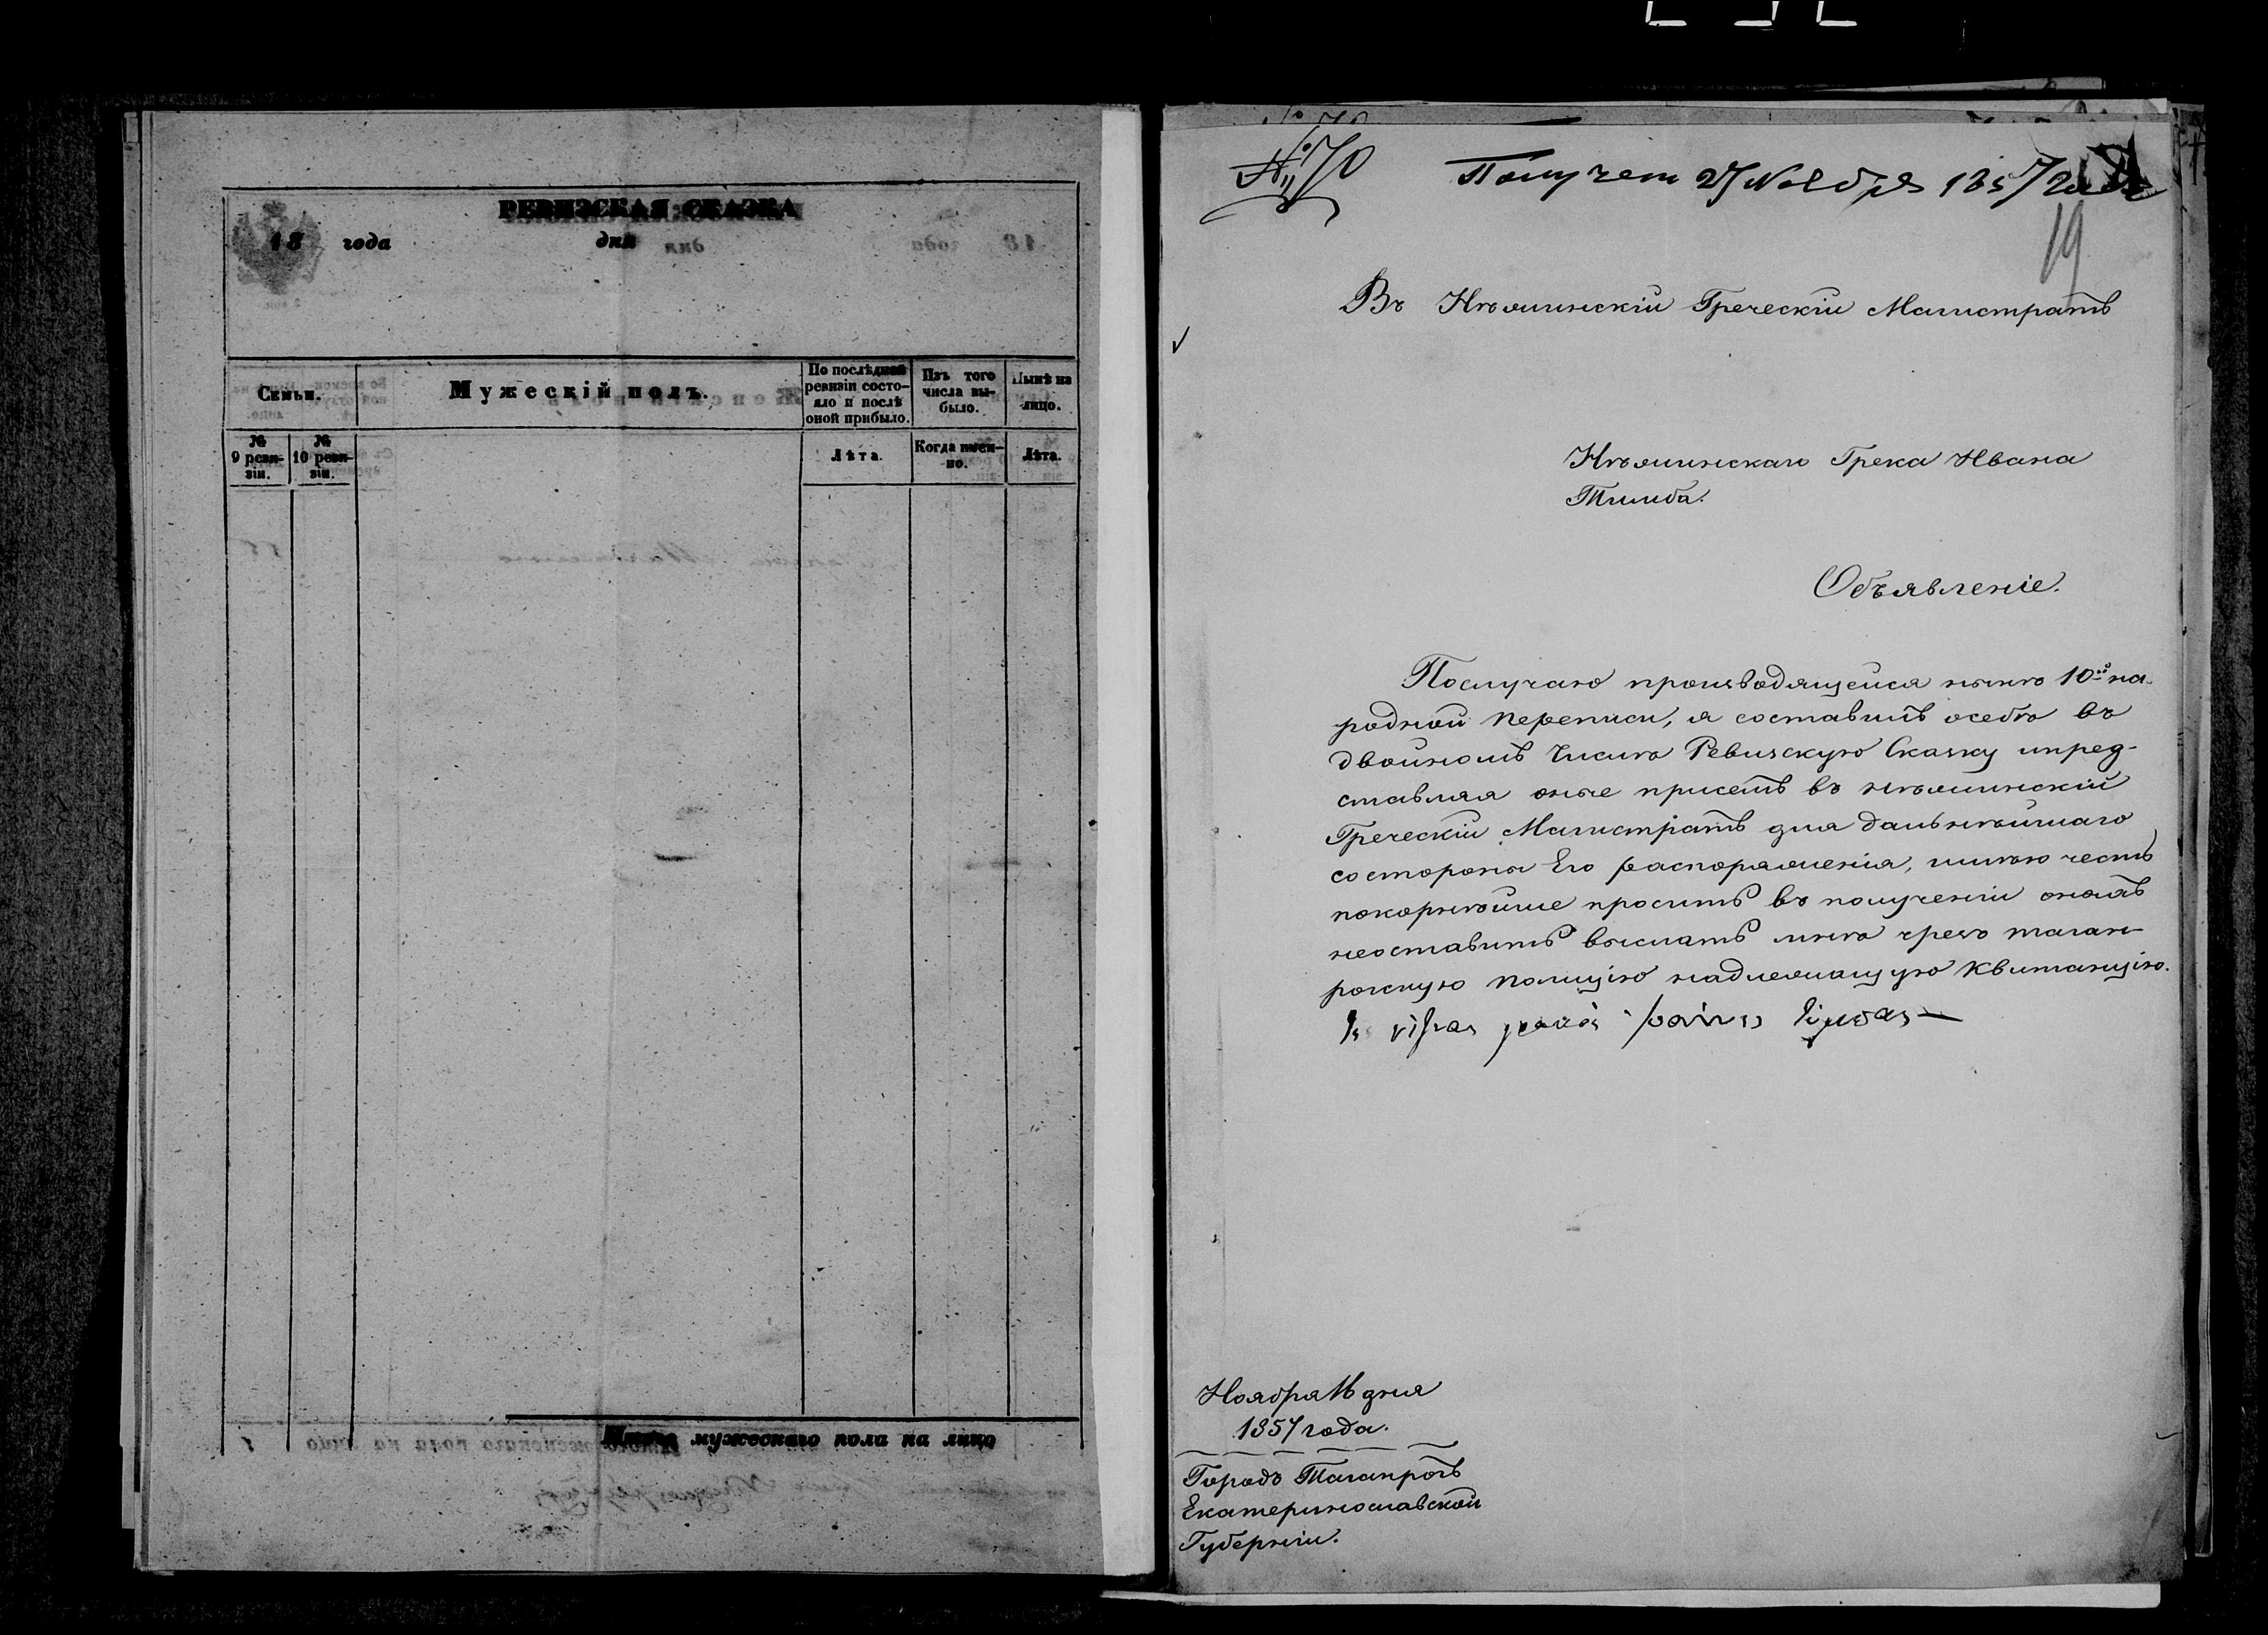 РЕВИЗСКАЯ СКАЗКА
18 года дня
Семьи.
Мужескій полъ.
По послѣдней ревизіи состо-
яло и послѣ оной прибыло.
Изъ того числа вы-
было.
Нынѣ на лицо.
№ 9 реви-
зіи.
№ 10 реви-
зіи.
Лѣта.
Когда имен-
но.
Лѣта.
Итого мужескаго пола на лицо
№ 70
Получен 27 Ноября 1857 года
19
Въ Нѣжинскій Греческій Магистратъ
Нѣжинскаго Грека Ивана
Тимба.
Объявленіе.
Послучаю производящейся нынѣ 10й на-
родной переписи, я составивъ особо въ
двойномъ числѣ Ревизскую Сказку ипред-
ставляя оные присемъ въ нѣжинскій
Греческій Магистратъ для дальнѣйшаго
состороны Его распоряженія, имѣю честь
покорнѣйше просить въ полученіи оныхъ
неоставить выслать мнѣ чрезъ таган-
рогскую полицію надлежащую Квитанцію.
Ноября 16 дня
1857 года.
Городъ Таганрогъ
Екатеринославской
Губерніи.